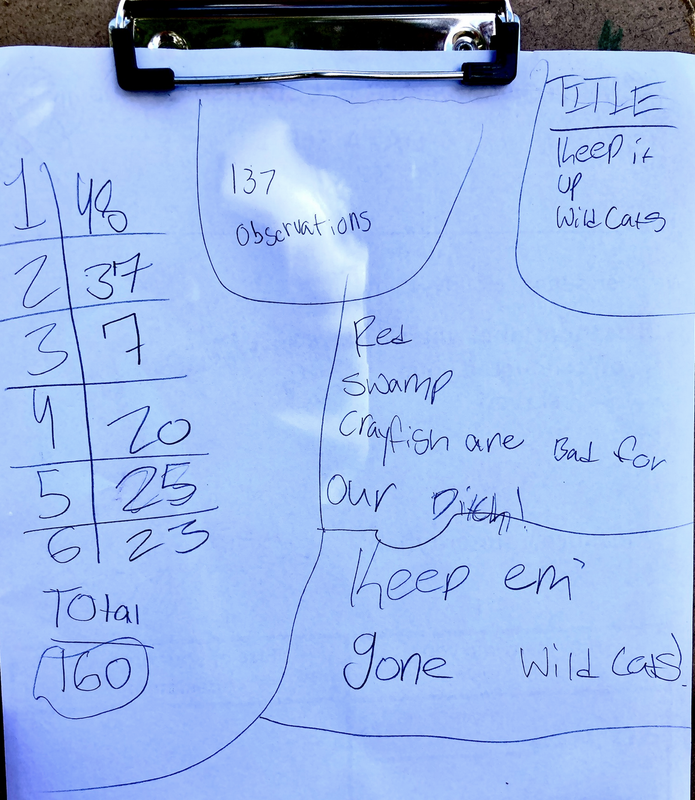 1 48
2 37
3 7
4 20
5 25
6 23
Total
160
137
observations
TITLE
Keep it
up
Wild Cats
Red
swamp
Crayfish are Bad for
our Ditch!
Keep em'
gone Wild Cats!